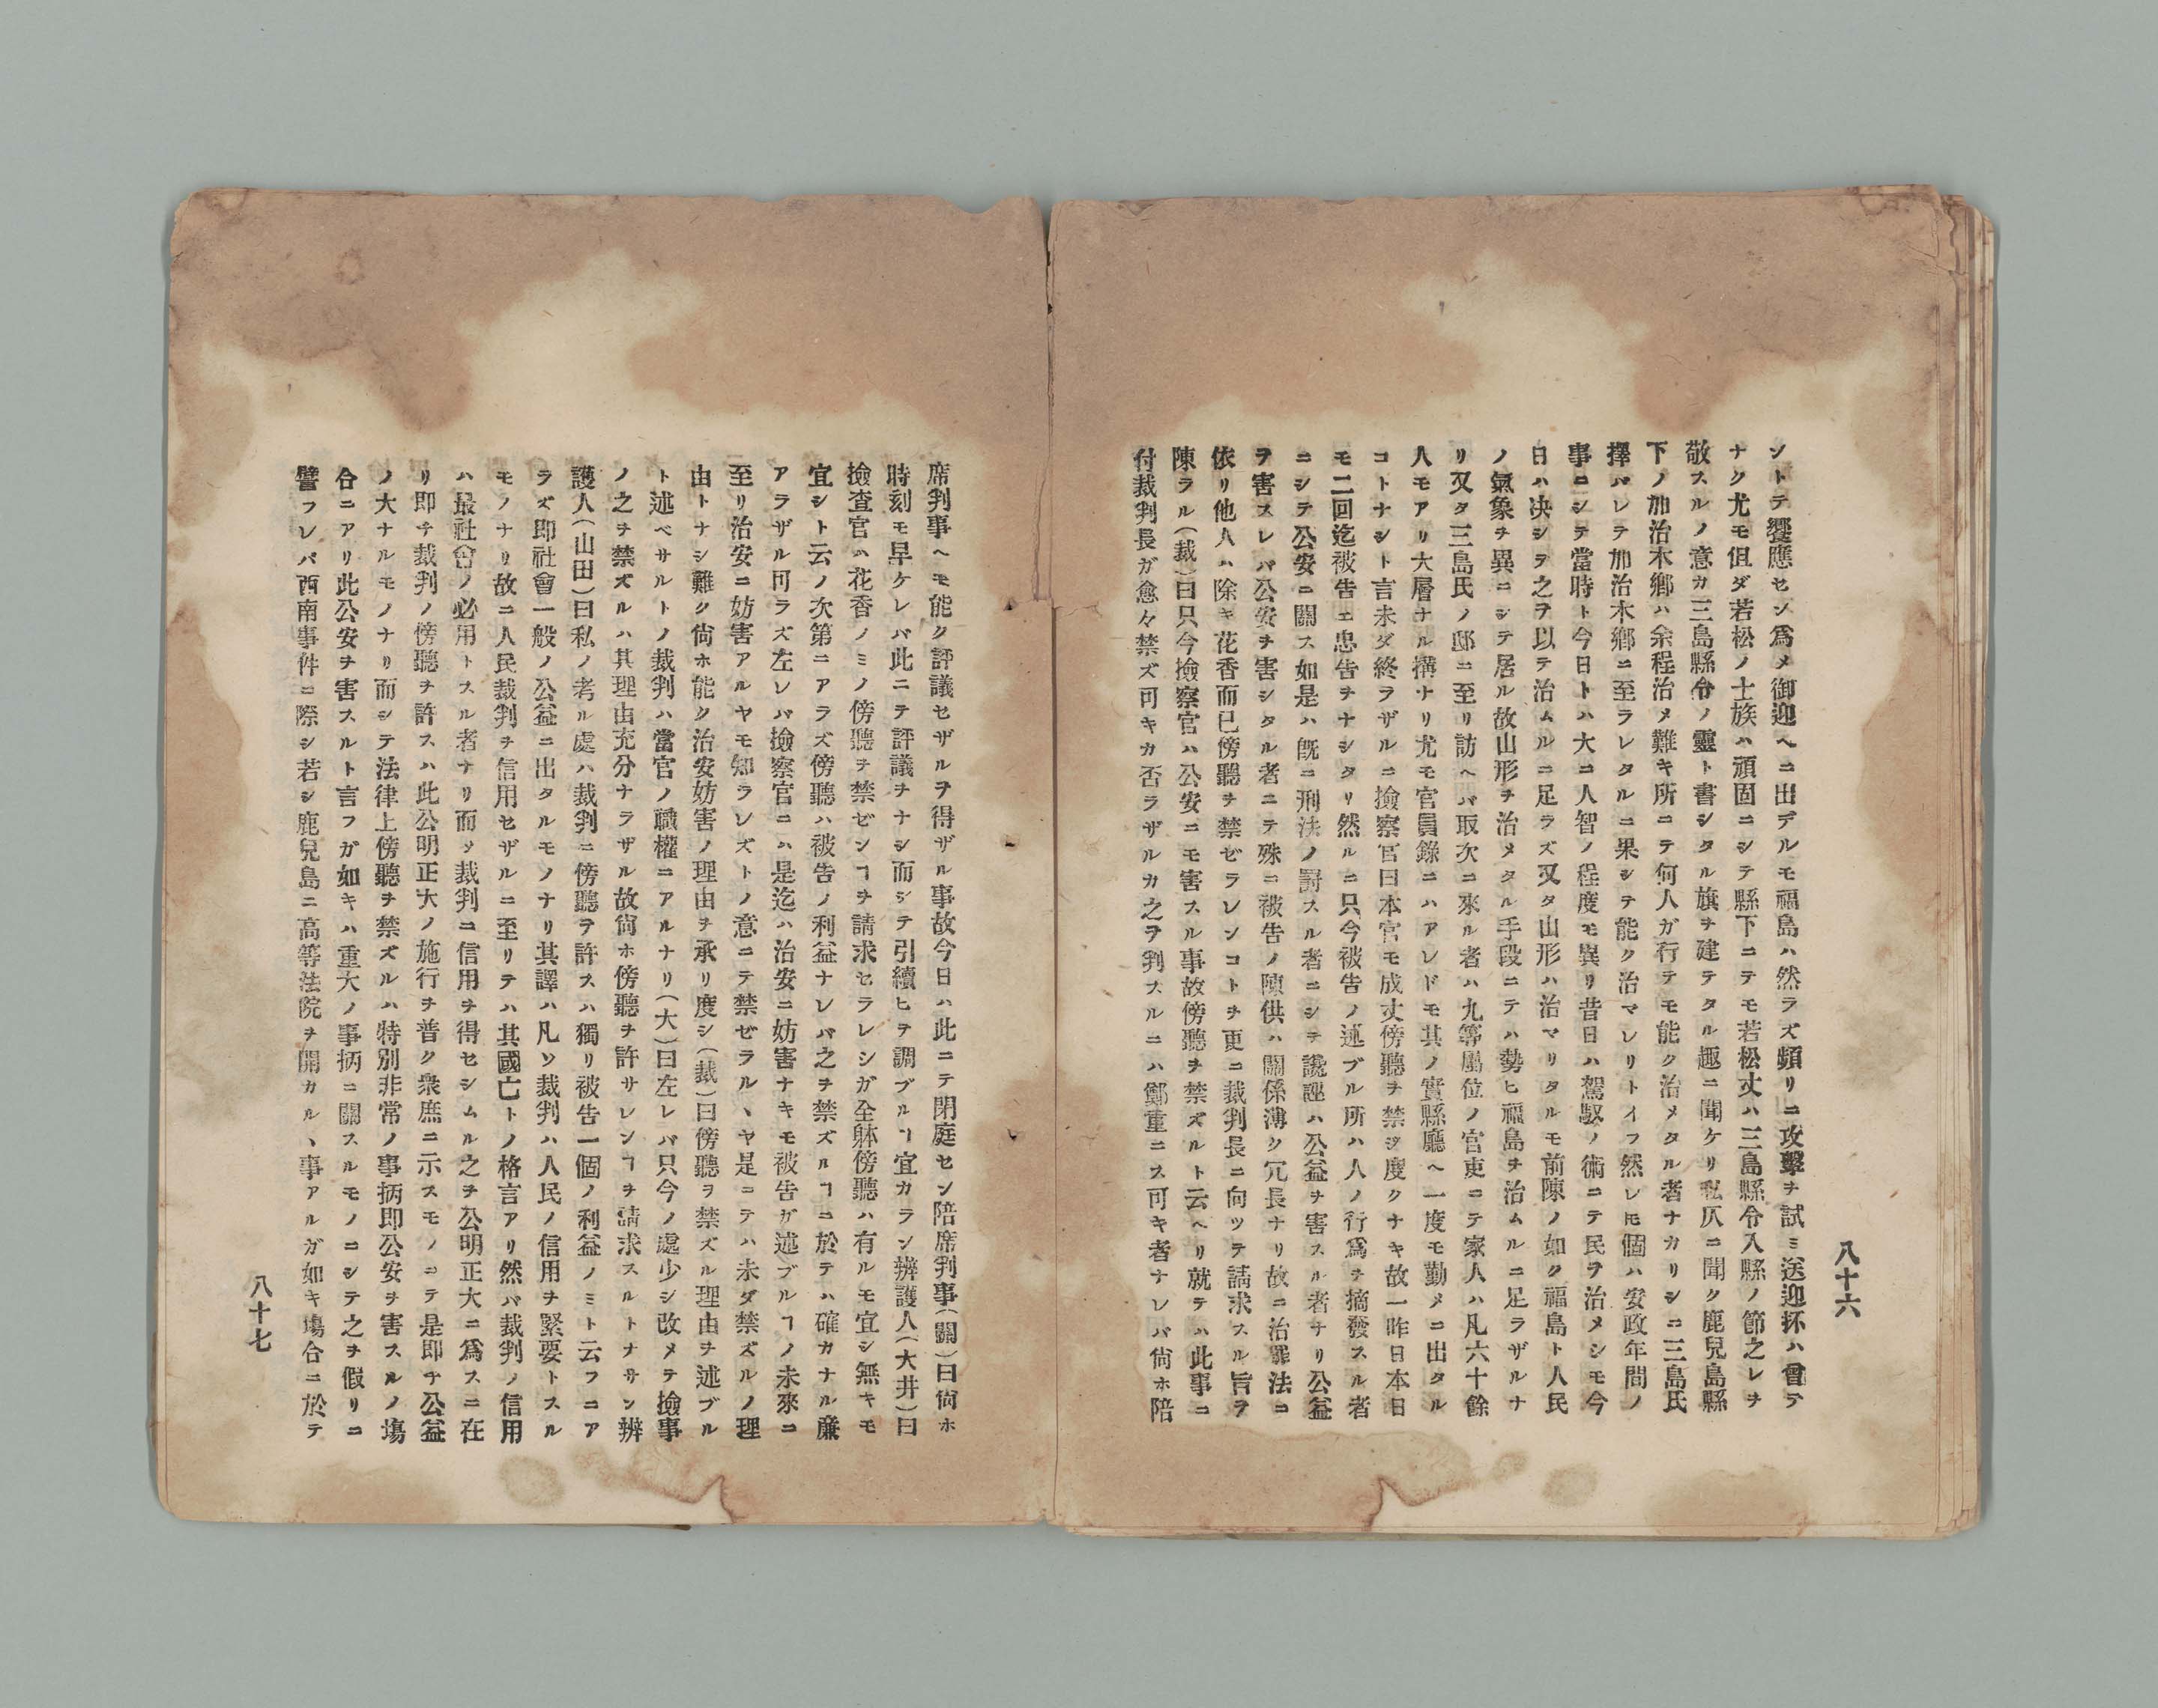 八十六
シトテ饗應セシ爲メ御迎ヘニ出デルモ福島ハ然ラズ頻リニ攻擊ヲ試ミ送迎抔ハ曾テ
ナク尤モ但ダ若松ノ士族ハ頑固ニシテ縣下ニテモ若松丈ハ三島縣令入縣ノ節之レヲ
敬スルノ意カ三島縣令ノ靈ト書シタル旗ヲ建テタル趣ニ聞ケリ私仄ニ聞ク鹿兒島縣
下ノ加治木鄕ハ余程治メ難キ所ニテ何人ガ行テモ能ク治メタル者ナカリシニ三島氏
擇バレテ加治木鄕ニ至ラレタルニ果シテ能ク治マレリトイフ然レ𪜈個ハ安政年間ノ
事ニシテ當時ト今日トハ大ニ人智ノ程度モ異リ昔日ハ駕馭ノ術ニテ民ヲ治メシモ今
日ハ决シテ之ヲ以テ治ムルニ足ラズ又タ山形ハ治マリタルモ前陳ノ如ク福島ト人民
ノ氣象ヲ異ニシテ居ル故山形ヲ治メタル手段ニテハ勢ヒ福島ヲ治ムルニ足ラザルナ
リ又タ三島氏ノ邸ニ至リ訪ヘバ取次ニ來ル者ハ九等屬位ノ官吏ニテ家人ハ凡六十餘
人モアリ大層ナル搆ナリ尤モ官員錄ニハアレドモ其ノ實縣廳ヘ一度モ勤メニ出タル
コトナシト言未ダ終ラザルニ撿察官曰本官モ成丈傍聽ヲ禁ジ度クナキ故一昨日本日
モ二回迄被告エ忠告ヲナシタリ然ルニ只今被告ノ述ブル所ハ人ノ行爲ヲ摘發スル者
ニシテ公安ニ關ス如是ハ旣ニ刑法ノ罸スル者ニシテ讒誣ハ公益ヲ害スル者ナリ公益
ヲ害スレバ公安ヲ害シタル者ニテ殊ニ被告ノ陳供ハ關係薄ク冗長ナリ故ニ治罪法ニ
依リ他人ハ除キ花香而已傍聽ヲ禁ゼラレンコトヲ更ニ裁判長ニ向ツテ請求スル旨ヲ
陳ラル（裁）曰只今撿察官ハ公安ニモ害スル事故傍聽ヲ禁ズルト云ヘリ就テハ此事ニ
付裁判長ガ愈々禁ズ可キカ否ラザルカ之ヲ判スルニハ鄭重ニス可キ者ナレバ尙ホ陪
席判事ヘモ能ク評議セザルヲ得ザル事故今日ハ此ニテ閉庭セン陪席判事（關）曰尙ホ
時刻モ早ケレバ此ニテ評議ヲナシ而シテ引續ヒテ調ブルヿ宜カラン辨護人（大井）曰
撿査官ハ花香ノミノ傍聽ヲ禁ゼンヿヲ請求セラレシガ全躰傍聽ハ有ルモ宜シ無キモ
宜シト云ノ次第ニアラズ傍聽ハ被告ノ利益ナレバ之ヲ禁ズルヿニ於テハ確カナル廉
アラザル可ラズ左レバ撿察官ニハ是迄ハ治安ニ妨害ナキモ被告ガ述ブルヿノ未來ニ
至リ治安ニ妨害アルヤモ知ラレズトノ意ニテ禁ゼラルヽヤ是ニテハ未ダ禁ズルノ理
由トナシ難ク尙ホ能ク治安妨害ノ理由ヲ承リ度シ（裁）曰傍聽ヲ禁ズル理由ヲ述ブル
ト述ベサルトノ裁判ハ當官ノ職權ニアルナリ（大）曰左レバ只今ノ處少シ改メテ撿事
ノ之ヲ禁ズルハ其理由充分ナラザル故尙ホ傍聽ヲ許サレンヿヲ請求スルトナサン辨
護人（山田）曰私ノ考ル處ハ裁判ニ傍聽ヲ許スハ獨リ被告一個ノ利益ノミト云フニア
ラズ即社會一般ノ公益ニ出タルモノナリ其譯ハ凡ソ裁判ハ人民ノ信用ヲ緊要トスル
モノナリ故ニ人民裁判ヲ信用セザルニ至リテハ其國亡トノ格言アリ然バ裁判ノ信用
ハ最社會ノ必用トスル者ナリ而〆裁判ニ信用ヲ得セシムル之ヲ公明正大ニ爲スニ在
リ即チ裁判ノ傍聽ヲ許スハ此公明正大ノ施行ヲ普ク衆庶ニ示スモノニテ是即チ公益
ノ大ナルモノナリ而シテ法律上傍聽ヲ禁ズルハ特別非常ノ事柄即公安ヲ害スルノ塲
合ニアリ此公安ヲ害スルト言フガ如キハ重大ノ事柄ニ關スルモノニシテ之ヲ假リニ
譬フレバ西南事件ニ際シ若シ鹿兒島ニ高等法院ヲ開カルヽ事アルガ如キ塲合ニ於テ
八十七